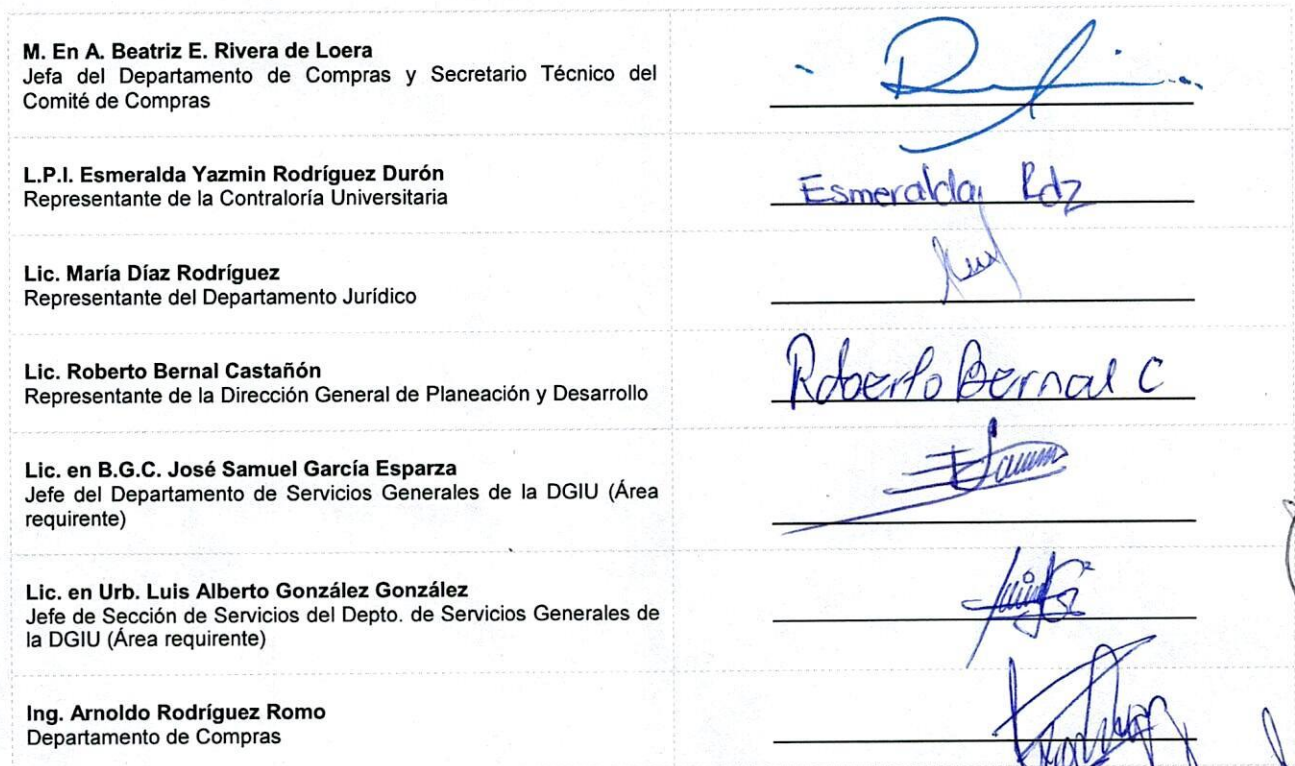 M. En A. Beatriz E. Rivera de Loera
Jefa del Departamento de Compras y Secretario Técnico del
Comité de Compras
L.P.I. Esmeralda Yazmin Rodríguez Durón
Representante de la Contraloría Universitaria
Esmeralda Rdz
Lic. María Díaz Rodríguez
Representante del Departamento Jurídico
Lic. Roberto Bernal Castañón
Representante de la Dirección General de Planeación y Desarrollo
Roberto Bernal C
Lic. en B.G.C. José Samuel García Esparza
Jefe del Departamento de Servicios Generales de la DGIU (Área
requirente)
Lic. en Urb. Luis Alberto González González
Jefe de Sección de Servicios del Depto. de Servicios Generales de
la DGIU (Área requirente)
Ing. Arnoldo Rodríguez Romo
Departamento de Compras